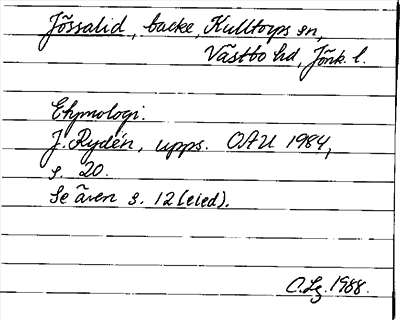 Jössalid, backe, Kulltorps sn,
Västbo hd, Jönk. l.
Etymologi.
J. Rydén, upps. OAU 1984,
s. 20.
Se även s. 12 (eled).
C.Lg. 1988.